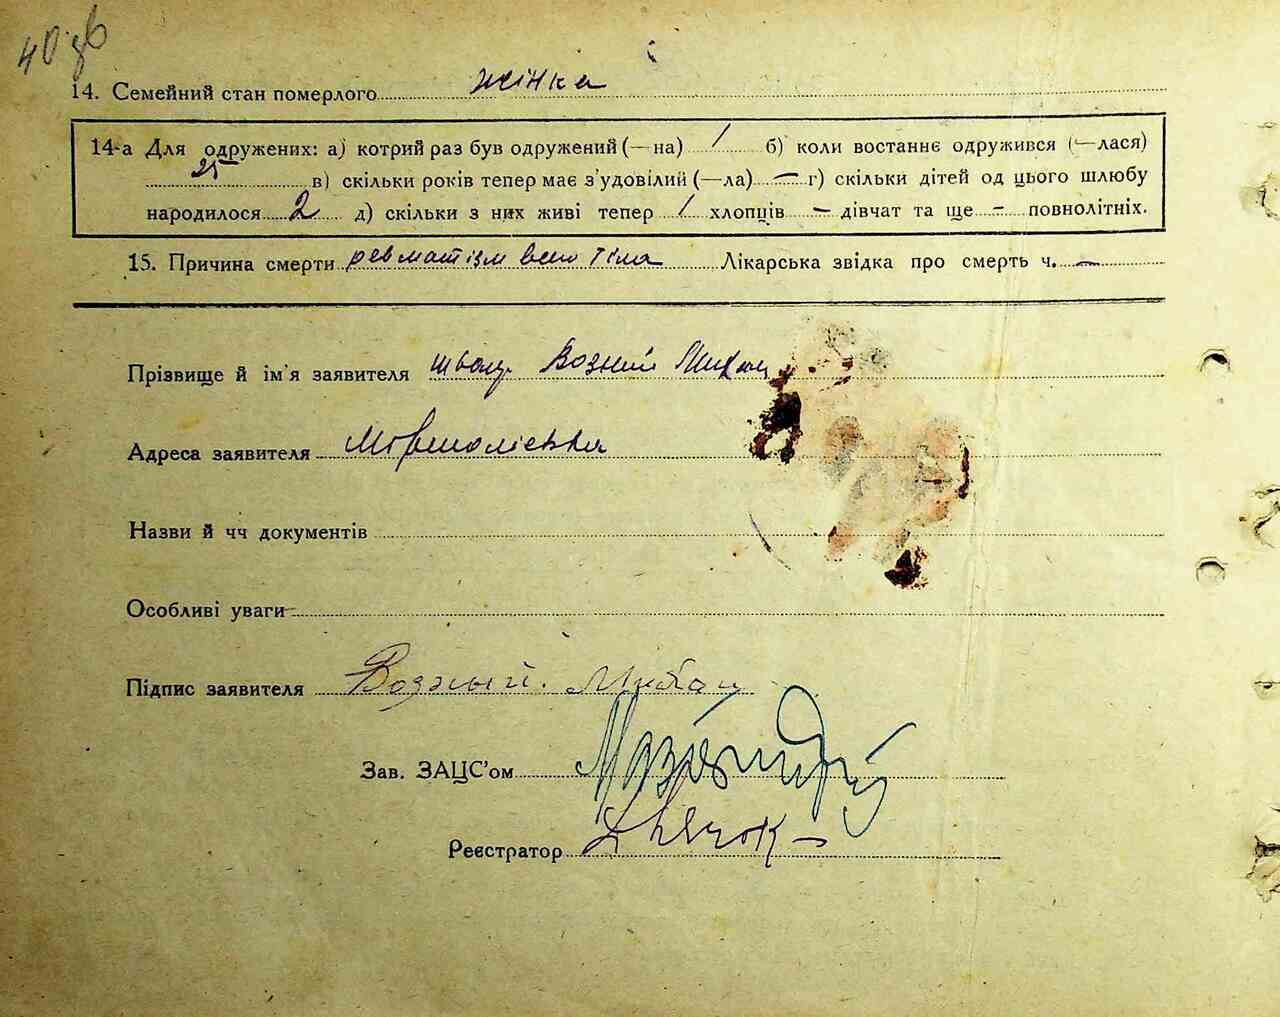 40 зв
14. Семейний стан померлого жінка
14-а Для одружених: а) котрий раз був одружений (—на) 1 б) коли востаннє одружився (—лася)
25 в) скільки років тепер має з'удовілий (—ла) — г) скільки дітей од цього шлюбу
народилося 2 д) скільки з них живі тепер 1 хлопців — дівчат та ще — повнолітніх.
15. Причина смерти ревматізм всего тіла Лікарська звідка про смерть ч. —
Прізвище й ім'я заявителя Возний
Адреса заявителя
Назви й чч документів
Особливі уваги
Підпис заявителя Возный.
Зав. ЗАЦС'ом
Реєстратор